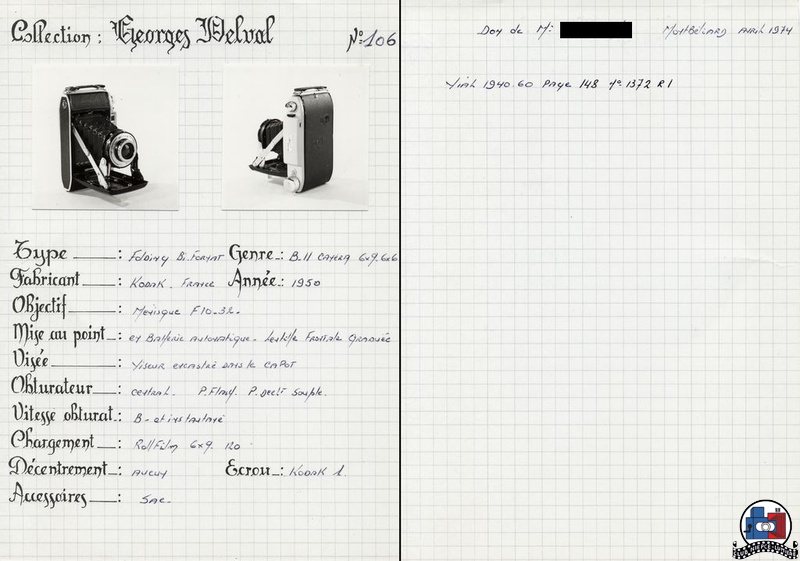 Collection : Georges Delval Nº 106
Type : Folding Bi. Format Genre : B.11 CAMERA 6x9.6x6
Fabricant : KODAK. FRANCE Année : 1950
Objectif : Ménisque F10-32.
Mise au point : et Batterie automatique. Lentille Frontale Graduée
Visée : Viseur encastré dans le CAPOT
Obturateur : central. P.Flash. P. Decl't souple.
Vitesse obturat. : B- et instantané
Chargement : Roll Film 6x9. 120
Décentrement : AUCUN Ecrou : KODAK 1.
Accessoires : SAC.
Don de Mr Montbéliard Avril 1974
Vial 1940.60 Page 148 nº 1372 R1